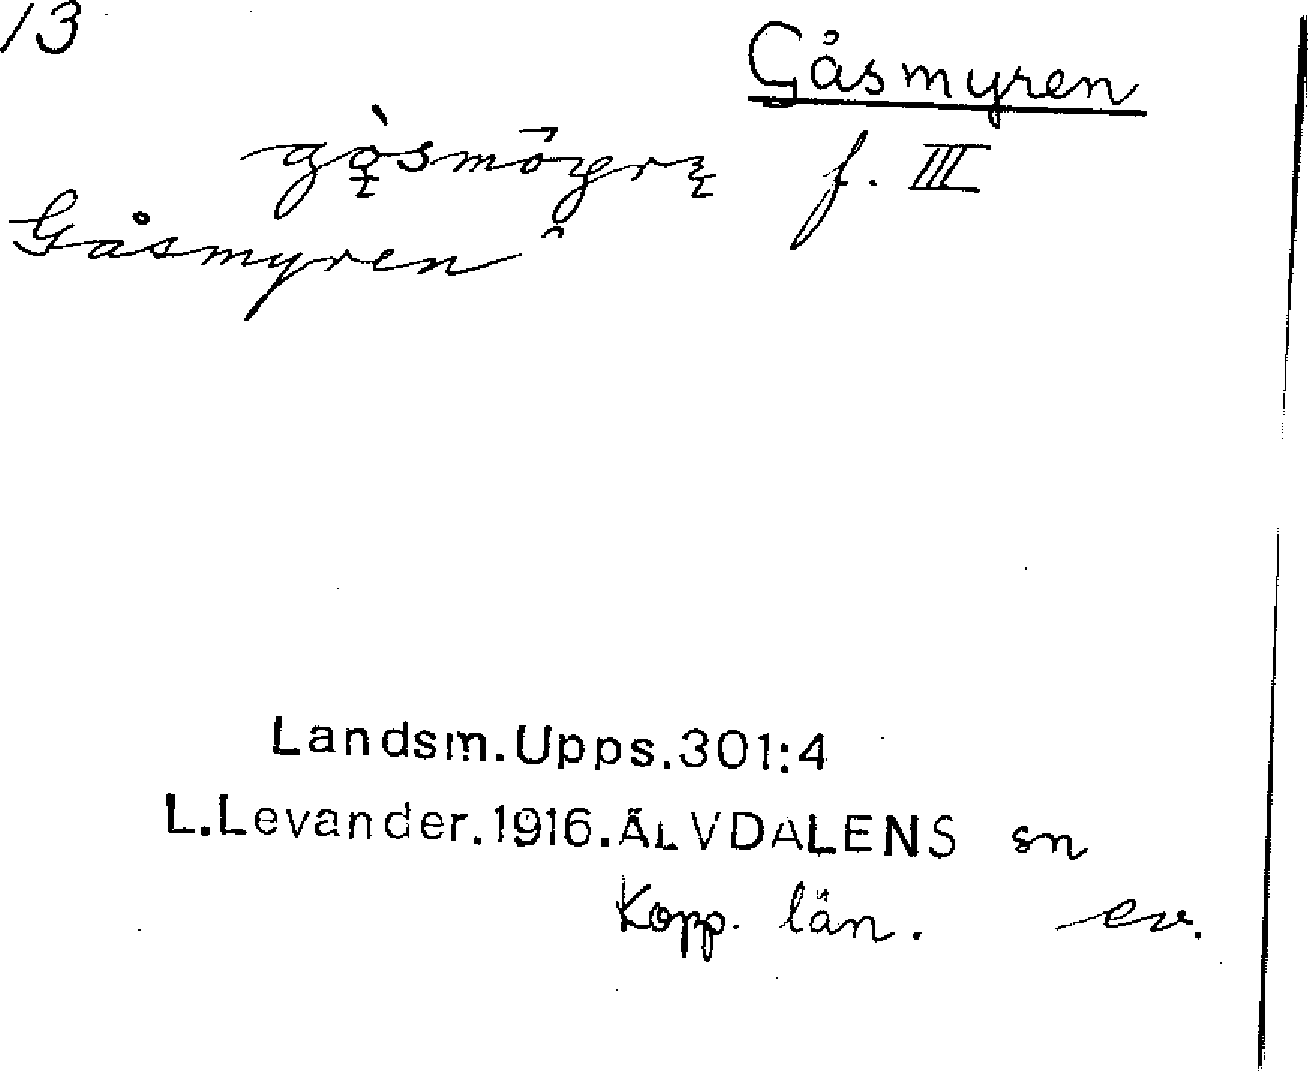 13
Gåsmyren
f. III
Gåsmyren
Landsm.Upps.301:4
L.Levander.1916.ÄLVDALENS sn
Kopp. län. ev.